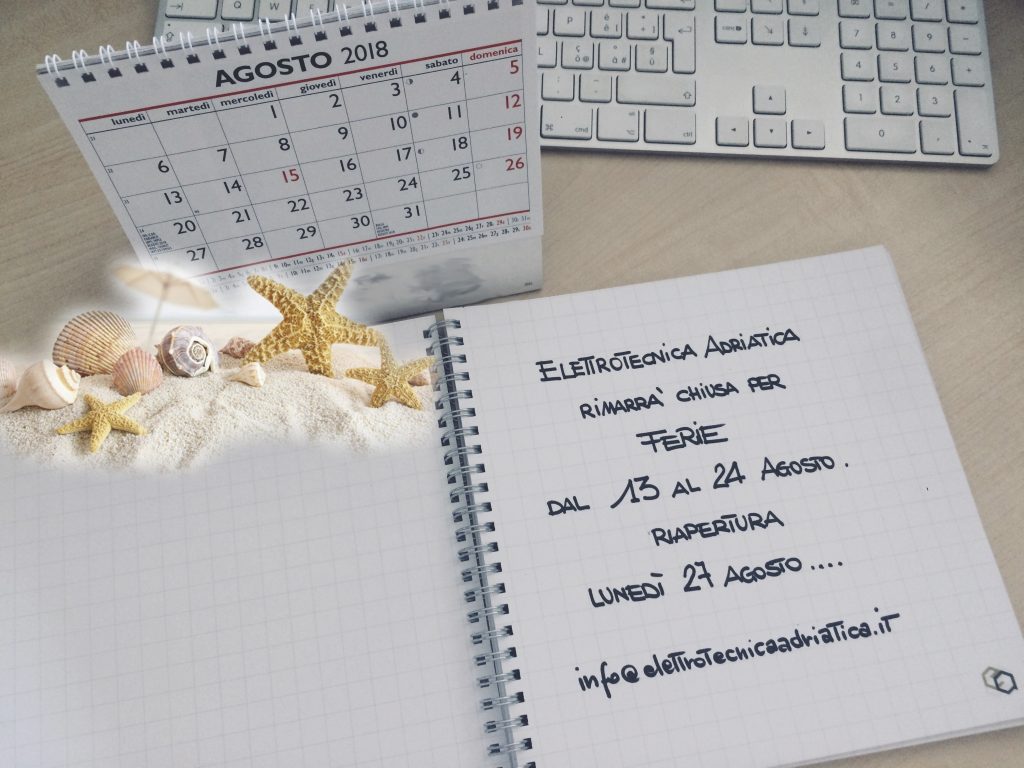 AGOSTO 2018
lunedì martedì mercoledì giovedì venerdì sabato domenica
1 2 3 4 5
6 7 8 9 10 11 12
13 14 15 16 17 18 19
20 21 22 23 24 25 26
27 28 29 30 31
ELETTROTECNICA ADRIATICA
RIMARRA' CHIUSA PER
FERIE
DAL 13 AL 24 AGOSTO.
RIAPERTURA
LUNEDÌ 27 AGOSTO....
info@elettrotecnicaadriatica.it